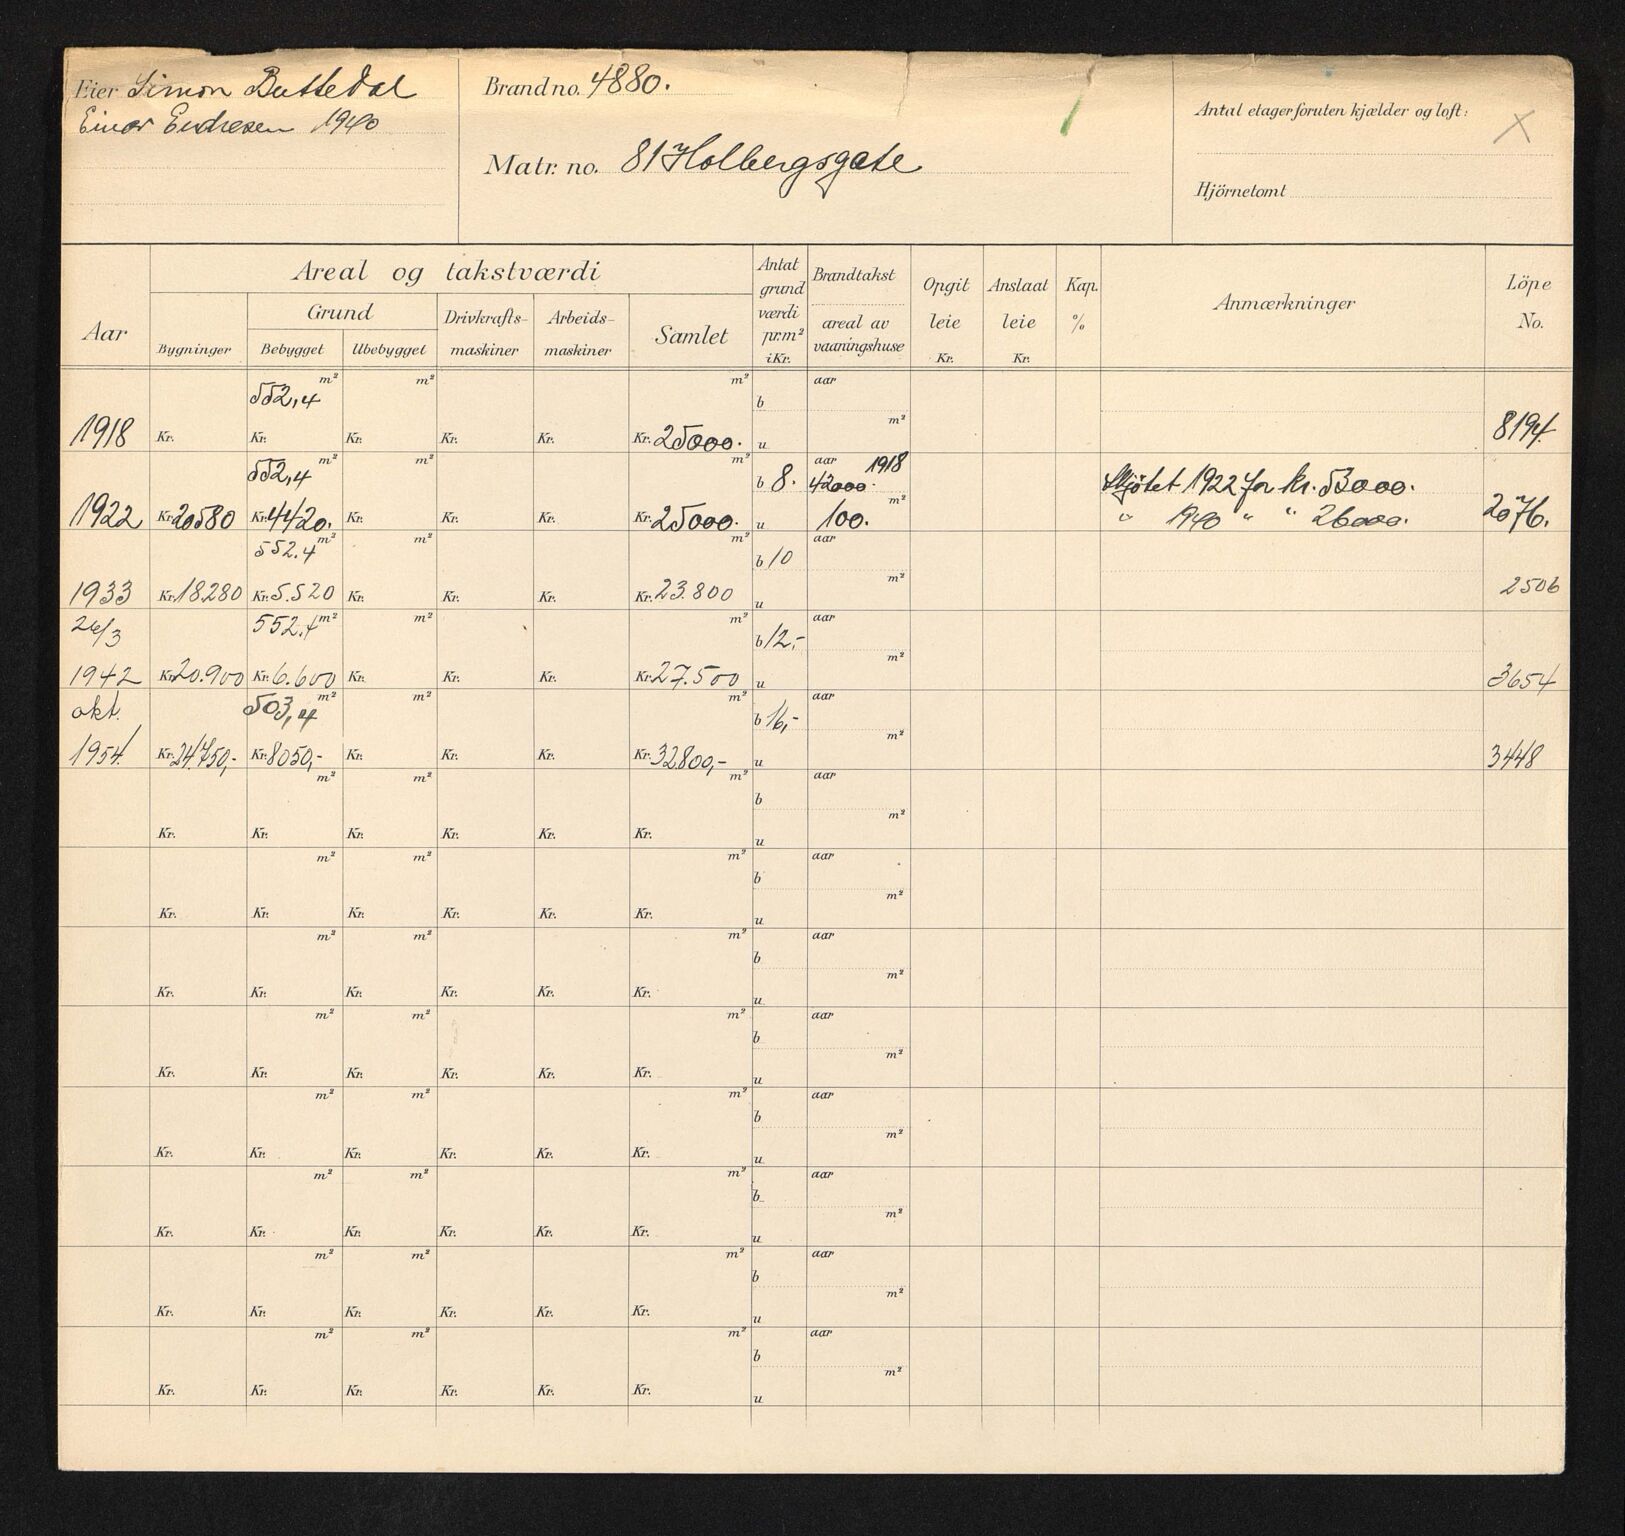 Eier Simon Buttedal
Einar Endresen 1940
Brand no. 4880.
Matr. no. 81 Holbergsgate
Antal etager foruten kjælder og loft:
X
Hjörnetomt
Aar
Areal og takstværdi
Bygninger
Grund
Bebygget
Ubebygget
Drivkrafts-
maskiner
Arbeids-
maskiner
Samlet
Antat
grund
værdi
pr. m²
i Kr.
Brandtakst
areal av
vaaningshuse
Opgit
leie
Kr.
Anslaat
leie
Kr.
Kap.
%
Anmærkninger
Löpe
No.
552,4 m² m² m² b aar
1918 Kr. Kr. Kr. Kr. Kr. Kr. 25000. u m² 8194.
552,4 m² m² m² b 8. aar 1918 42000. Skjötet 1922 for kr. 53000.
1922 Kr. 20580 Kr. 4420. Kr. Kr. Kr. Kr. 25000. u 100. m² " 1940 " " 26000. 2076.
552.4 m² m² m² b 10 aar
1933 Kr. 18.280 Kr. 5.520 Kr. Kr. Kr. Kr. 23.800 u m² 2506
26/3 552.4 m² m² m² b 12,- aar
1942 Kr. 20.900 Kr. 6.600 Kr. Kr. Kr. Kr. 27.500 u m² 3654
okt. 503,4 m² m² m² b 16,- aar
1954 Kr. 24.750,- Kr. 8050,- Kr. Kr. Kr. Kr. 32.800,- u m² 3448
m² m² m² b aar
Kr. Kr. Kr. Kr. Kr. Kr. u m²
m² m² m² b aar
Kr. Kr. Kr. Kr. Kr. Kr. u m²
m² m² m² b aar
Kr. Kr. Kr. Kr. Kr. Kr. u m²
m² m² m² b aar
Kr. Kr. Kr. Kr. Kr. Kr. u m²
m² m² m² b aar
Kr. Kr. Kr. Kr. Kr. Kr. u m²
m² m² m² b aar
Kr. Kr. Kr. Kr. Kr. Kr. u m²
m² m² m² b aar
Kr. Kr. Kr. Kr. Kr. Kr. u m²
m² m² m² b aar
Kr. Kr. Kr. Kr. Kr. Kr. u m²